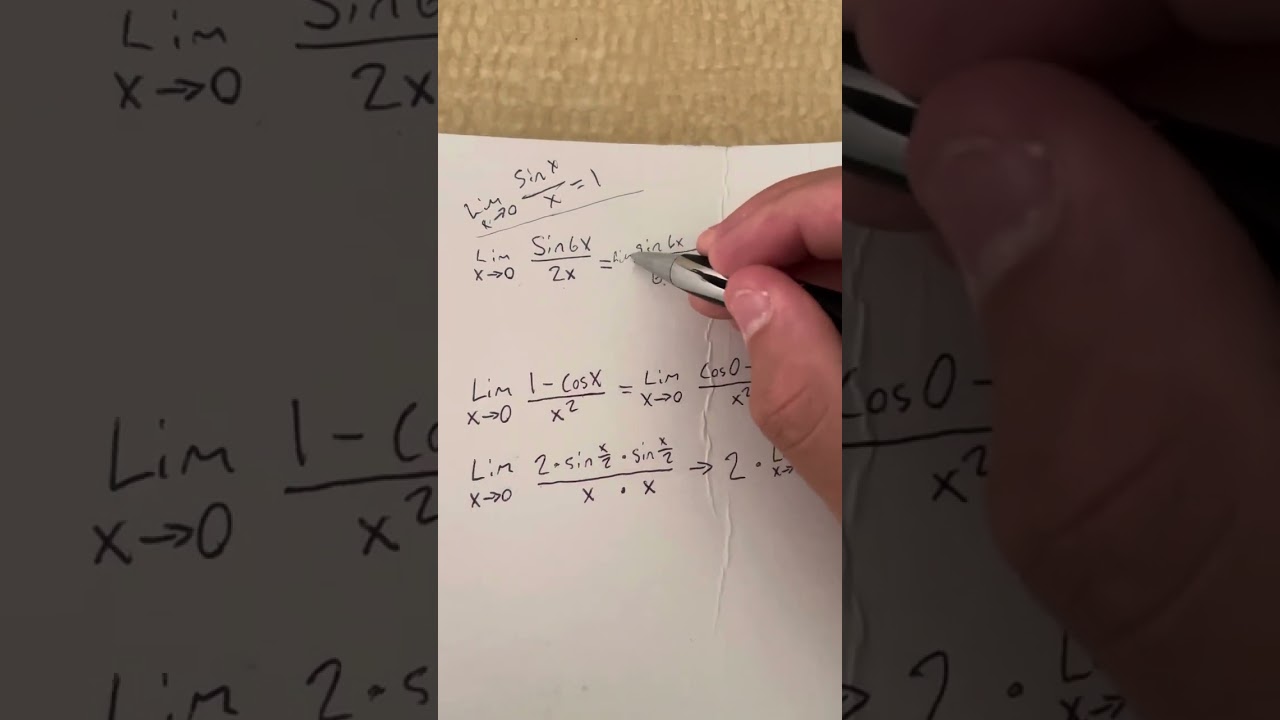 Lim x→0 sin x / x = 1
Lim x→0 Sin6x / 2x = Lim sin 6x
Lim x→0 1 - Cosx / x² = Lim x→0 Cos0 - / x²
Lim x→0 2 • sin x/2 • sin x/2 / x • x → 2 • L x→